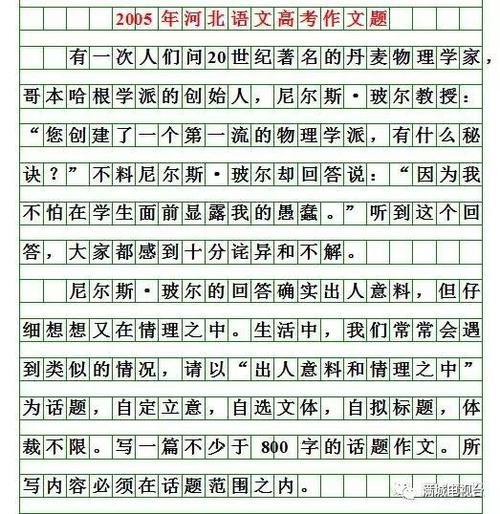 2005年河北语文高考作文题
有一次人们问20世纪著名的丹麦物理学家，
哥本哈根学派的创始人，尼尔斯·玻尔教授：
“您创建了一个第一流的物理学派，有什么秘
诀？”不料尼尔斯·玻尔却回答说：“因为我
不怕在学生面前显露我的愚蠢。”听到这个回
答，大家都感到十分诧异和不解。
尼尔斯·玻尔的回答确实出人意料，但仔
细想想又在情理之中。生活中，我们常常会遇
到类似的情况，请以“出人意料和情理之中”
为话题，自定立意，自选文体，自拟标题，体
裁不限。写一篇不少于800字的话题作文。所
写内容必须在话题范围之内。
满城电视台